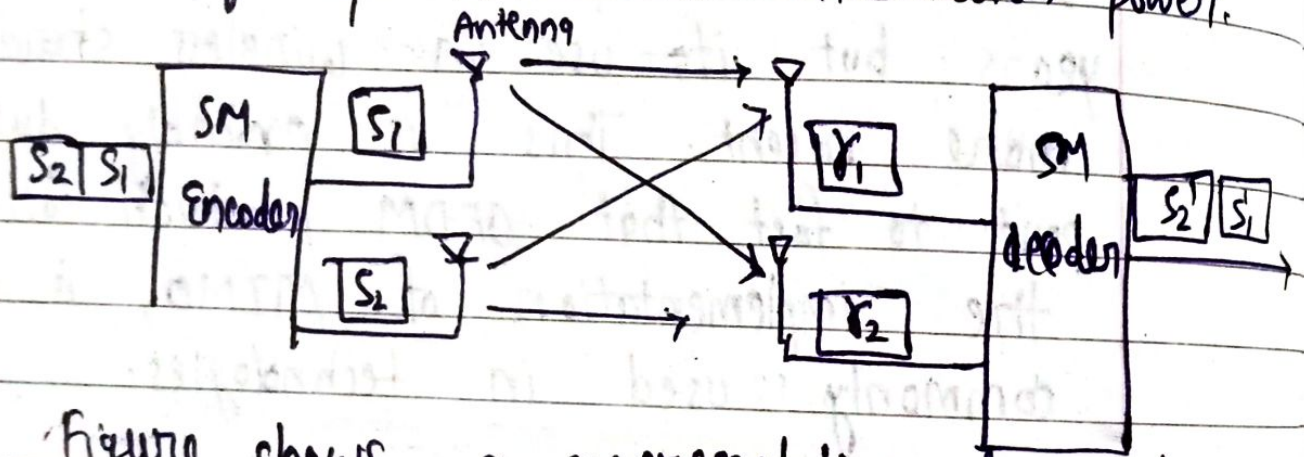 power.
Antenna
S2 S1
SM
Encoder
S1
S2
r1
r2
SM
decoder
S2' S1'
Figure shows